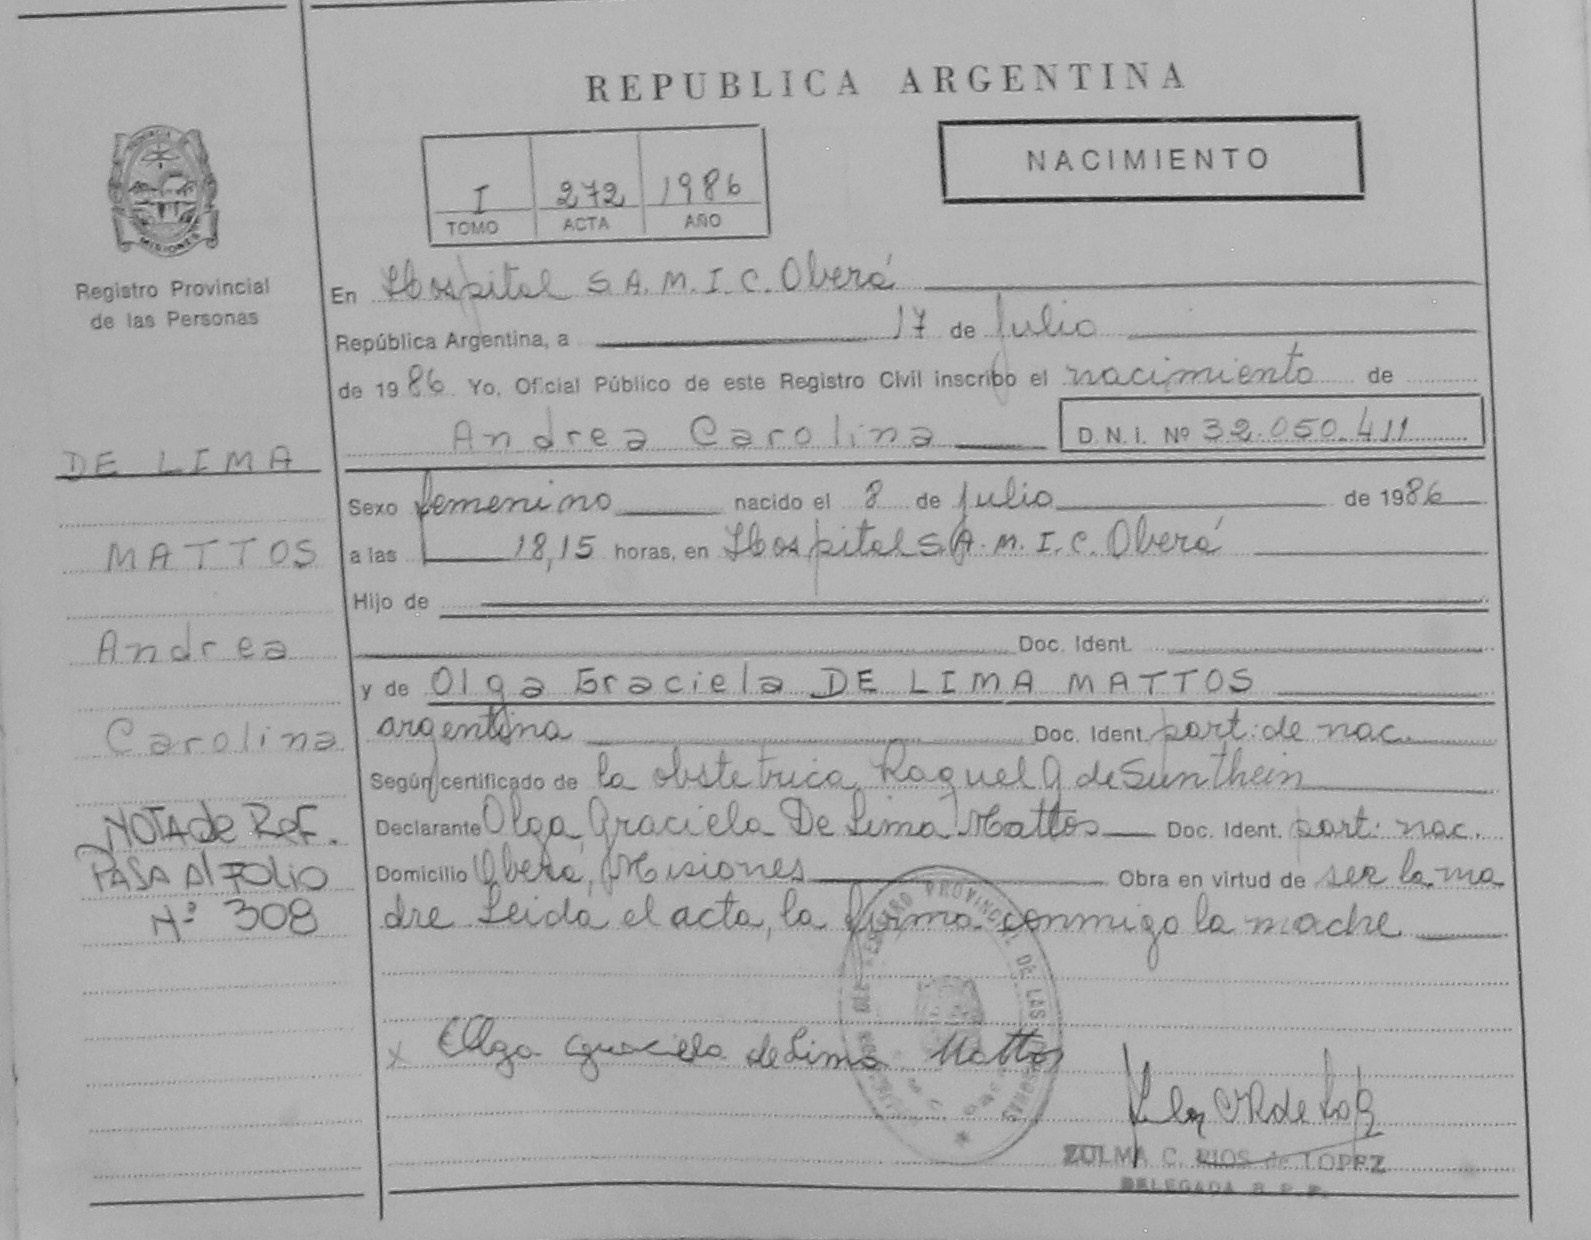 REPUBLICA ARGENTINA
NACIMIENTO
I 272 1986
TOMO ACTA AÑO
PROVINCIA
MISIONES
Registro Provincial
de las Personas
En Hospital S.A.M.I.C. Oberá
República Argentina, a 17 de Julio
de 1986 Yo, Oficial Público de este Registro Civil inscribo el nacimiento de
Andrea Carolina D.N.I. Nº 32.050.411
DE LIMA
MATTOS
Andrea
Carolina
NOTA de REF.
PASA Al FOLIO
Nº 308
Sexo femenino nacido el 8 de Julio de 1986
a las 18,15 horas, en Hospital S.A.M.I.C. Oberá
Hijo de
Doc. Ident.
y de Olga Graciela DE LIMA MATTOS
argentina Doc. Ident. part. de nac.
Según certificado de la obstetrica Raquel G de Sunthein
Declarante Olga Graciela De Lima Mattos Doc. Ident. part. nac.
Domicilio Oberá, Misiones Obra en virtud de ser la ma
dre Leida el acta, la firma conmigo la madre
PROVINCIAL DE LAS PERSONAS
x Olga Graciela de Lima Mattos
ZULMA C. RIOS de LOPEZ
DELEGADA R.P.P.